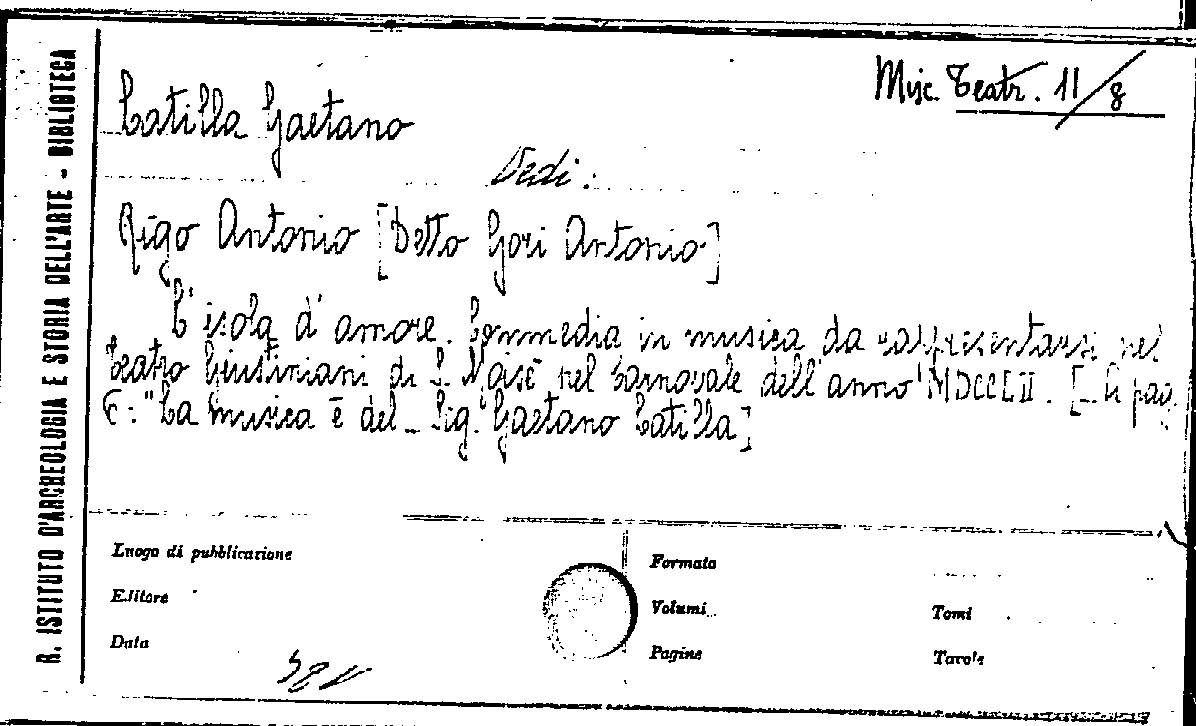 R. ISTITUTO D'ARCHEOLOGIA E STORIA DELL'ARTE - BIBLIOTECA
Misc. Teatr. 11/8
Latilla Gaetano
Vedi:
Rigo Antonio [Detto Gori Antonio]
L'isola d'amore. Commedia in musica da rappresentarsi nel
Teatro Giustiniani di S. Moisè nel Carnovale dell'anno MDCCLII. [_ A pag
5: "La musica è del _ Sig. Gaetano Latilla]
Luogo di pubblicazione
Editore
Data
Formato
Volumi
Tomi
Pagine
Tavole